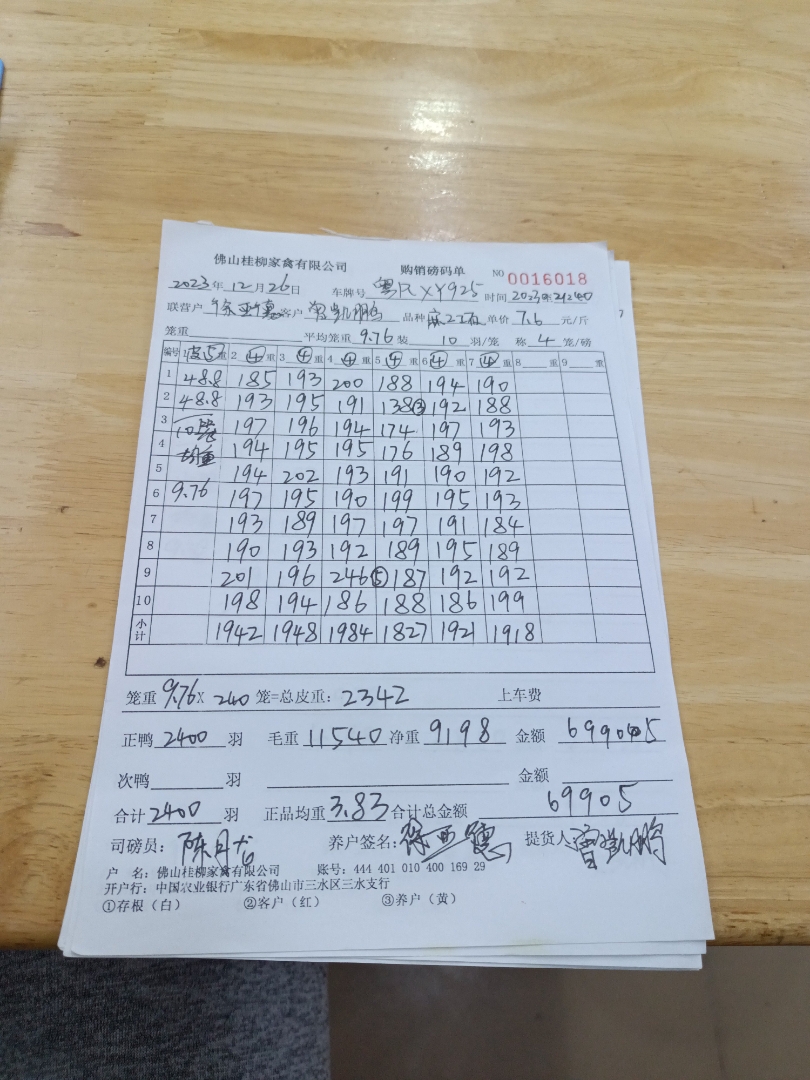 佛山桂柳家禽有限公司 购销磅码单 NO 0016018
2023年12月26日 车牌号 粤RXY925 时间 2023年
联营户 客户 曾凯鹏 品种 单价 7.6 元/斤
笼重 平均笼重 9.76 装 10 羽/笼 称 4 笼/磅
编号 1 皮⑤ 重 2 ④ 重 3 ④ 重 4 ④ 重 5 ④ 重 6 ④ 重 7 ④ 重 8 重 9 重
1 48.8 185 193 200 188 194 190
2 48.8 193 195 191 138③ 192 188
3 197 196 194 174 197 193
4 均重 194 195 195 176 189 198
5 194 202 193 191 190 192
6 9.76 197 195 190 199 195 193
7 193 189 197 197 191 184
8 190 193 192 189 195 189
9 201 196 246⑤ 187 192 192
10 198 194 186 188 186 199
小计 1942 1948 1984 1827 1921 1918
笼重 9.76 X 240 笼=总皮重： 2342 上车费
正鸭 2400 羽 毛重 11540 净重 9198 金额
次鸭 羽 金额
合计 2400 羽 正品均重 3.83 合计总金额 69905
司磅员： 陈月龙 养户签名： 提货人 曾凯鹏
户 名：佛山桂柳家禽有限公司 账号：444 401 010 400 169 29
开户行：中国农业银行广东省佛山市三水区三水支行
①存根（白） ②客户（红） ③养户（黄）